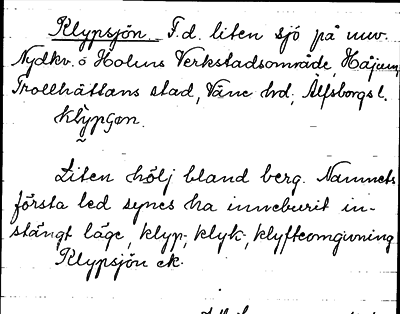 Klypsjön. F.d. liten sjö på nuv.
Nydkv. o Holms Verkstadsområde, Håjum,
Trollhättans stad, Väne hd, Älfsborgs l.
Liten hölj bland berg. Namnets
första led synes ha inneburit in-
stängt läge, klyp-, klyk-, klyftomgivning
Klypsjön ek.